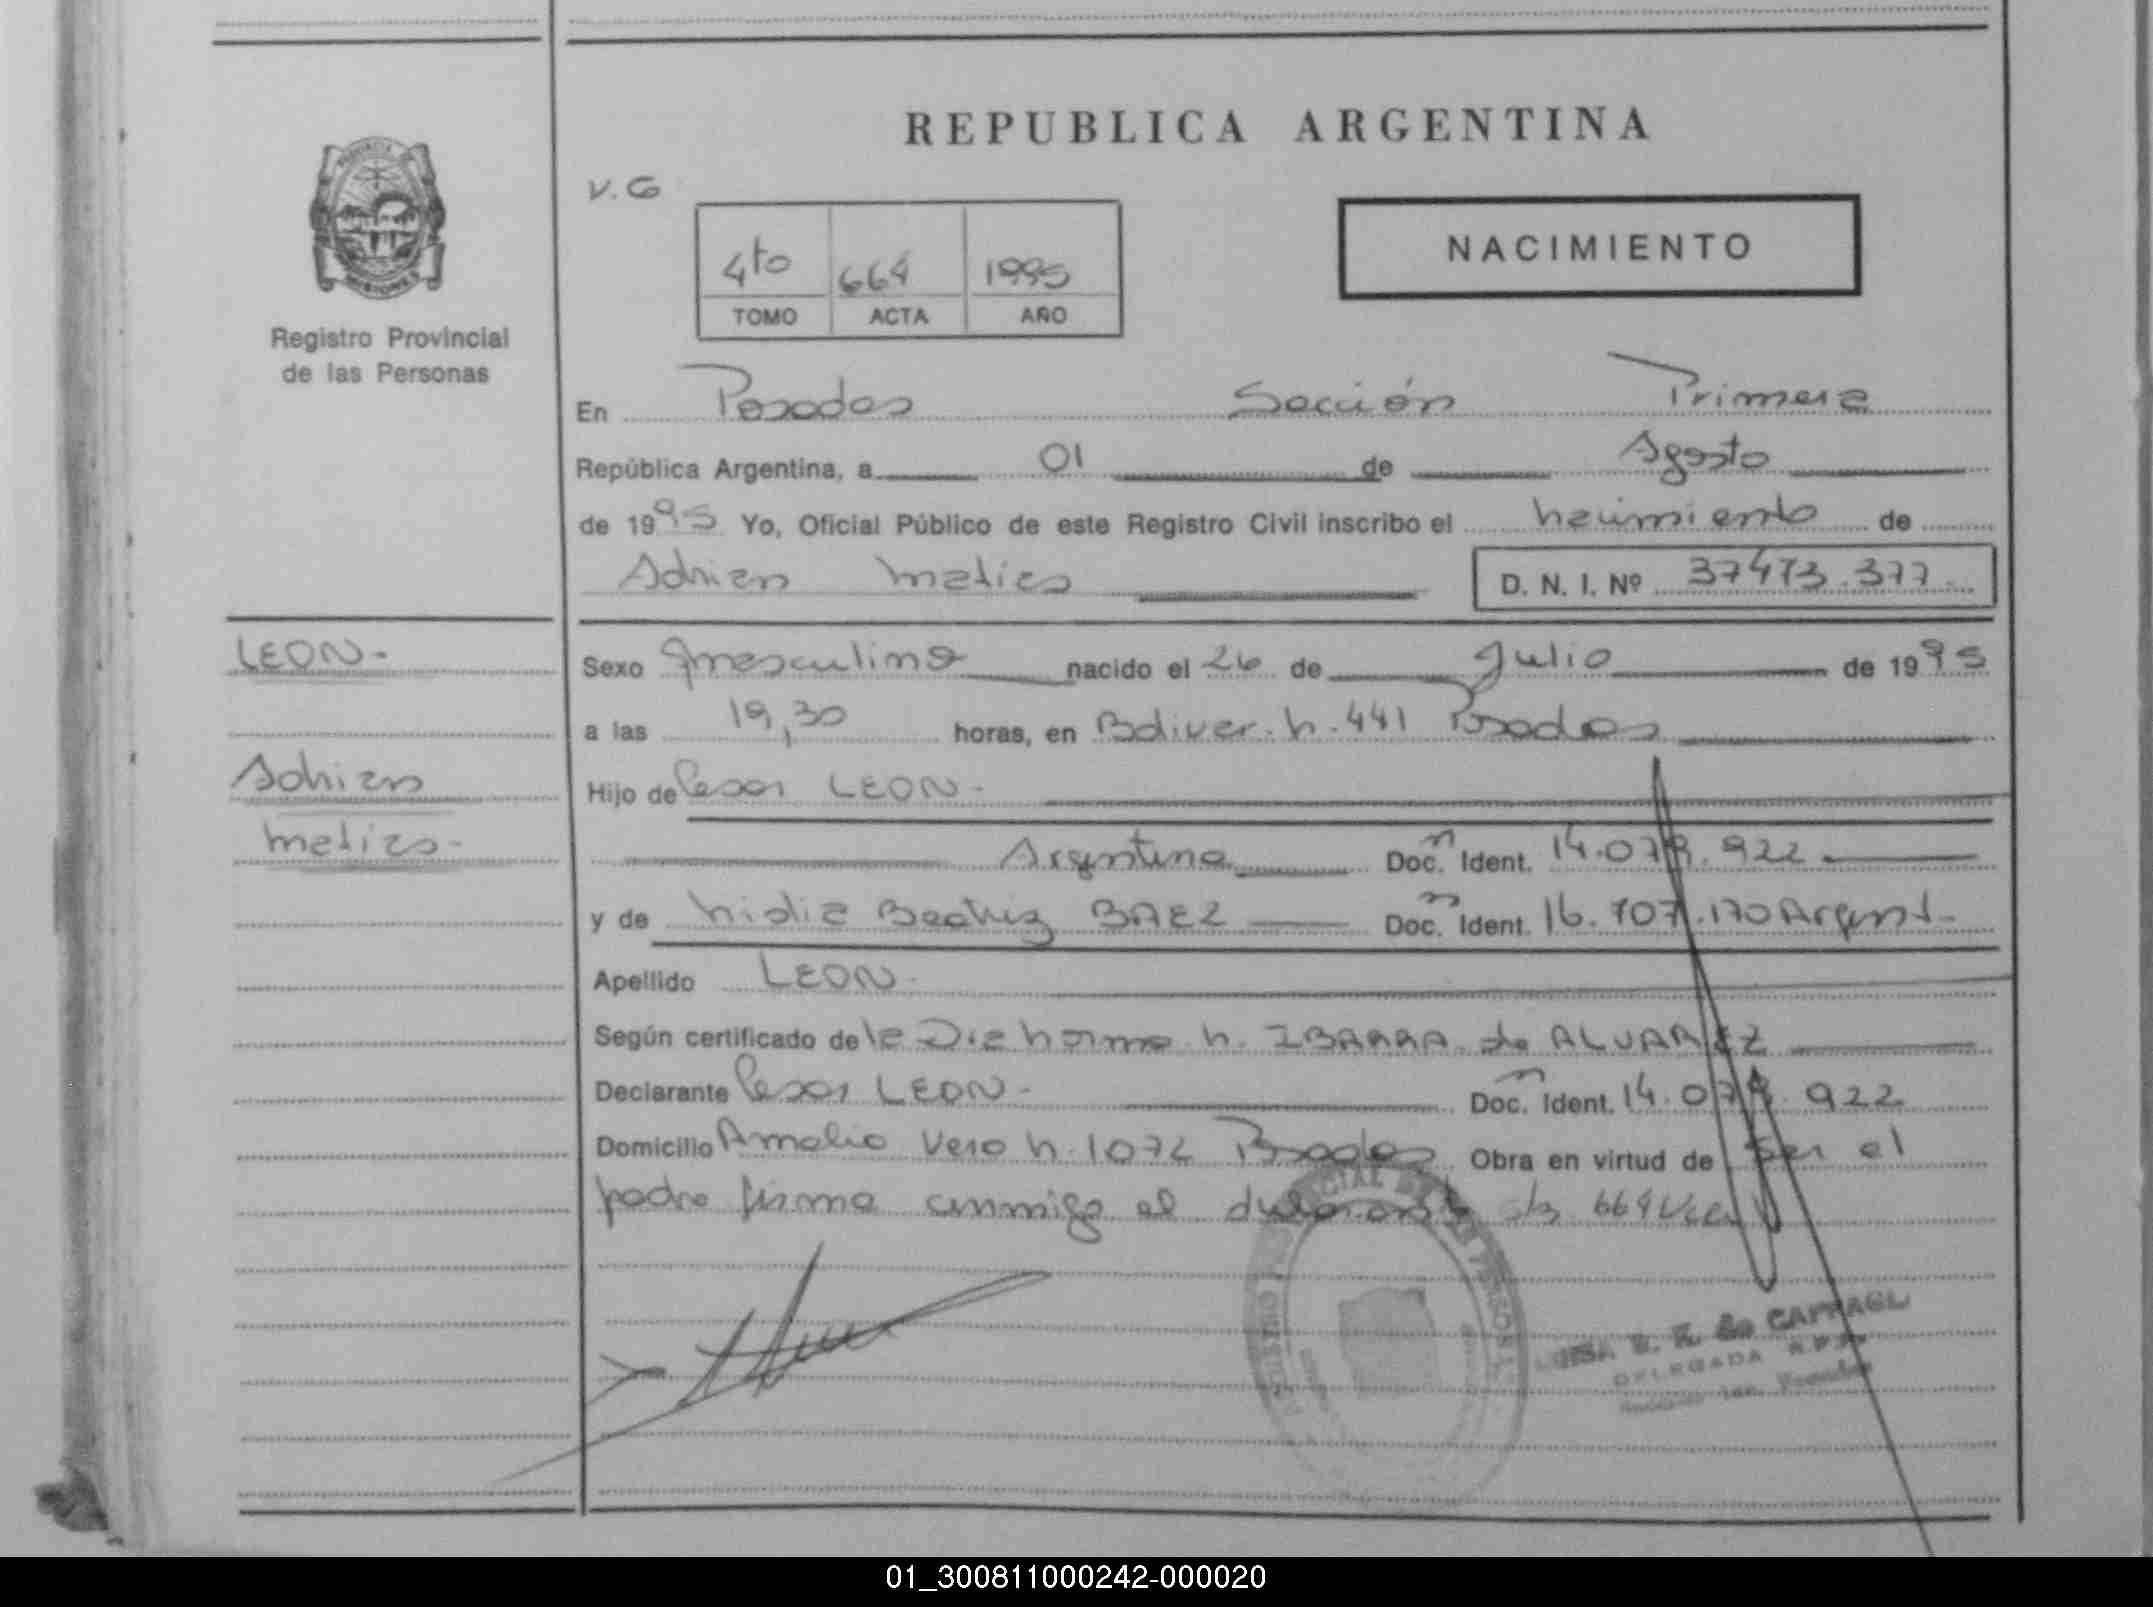 REPUBLICA ARGENTINA
V.G
NACIMIENTO
4to 664 1995
TOMO ACTA AÑO
PROVINCIA DE
MISIONES
Registro Provincial
de las Personas
En Posadas Sección Primera
República Argentina, a 01 de Agosto
de 1995 Yo, Oficial Público de este Registro Civil inscribo el nacimiento de
Adrian Matias D. N. I. Nº 37473.377
LEON-
Sexo masculino nacido el 26 de Julio de 1995
a las 19,30 horas, en Bolivar. n. 441 Posadas
Adrian
Hijo de Cesar LEON-
Matias-
Argentina Doc. Ident. 14.079.922
y de Nidia Beatriz BAEZ Doc. Ident. 16.707.170 Argent-
Apellido LEON-
Según certificado de la Dra Norma n. IBARRA de ALVAREZ
Declarante Cesar LEON- Doc. Ident. 14.079.922
Domicilio Amalio Vero n. 1074 Posadas Obra en virtud de Ser el
padre firma conmigo el declarante 664
DELEGADA R.P.P.
01_300811000242-000020